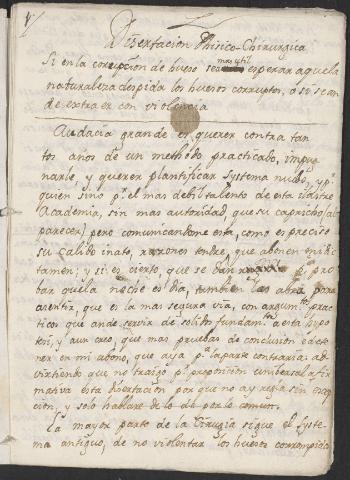 Disertacion Phisico-Chirurgica
Si en la corrupcion de hueso sea mas util esperar aquela
naturaleza despida los huesos corruptos, o si sean
de extraer con violencia
Audacia grande es querer contra tan
tos años de un methodo practicado, impug
narle, y querer plantificar systema nuebo, y pr.
quien sino pr. el mas debil talento de esta ilustre
Academia, sin mas autoridad, que su capricho (al
parecer) pero comunicandome esta, como es preciso
su calido inato, razones tendre, que abonen mi dic
tamen; y si es cierto, que se dan pa. pro
bar quela noche es dia, tambien las abra para
asentir, que es la mas segura via, con argumtos. prac
ticos que ande servir de solido fundamto. a esta hypo
tesi, y aun creo, que mas pruebas de conclusion e de te
ner en mi abono, que aya pr. la parte contraria: ad
virtiendo que no traigo pr. proposicion unibersal afir
mativa esta disertacion por que no ay regla sin exep
cion, y solo hablare de lo qe. por lo comun.
La mayor parte de la Cirugia sigue el syste
ma antiguo, de no violentar los huesos corrompidos